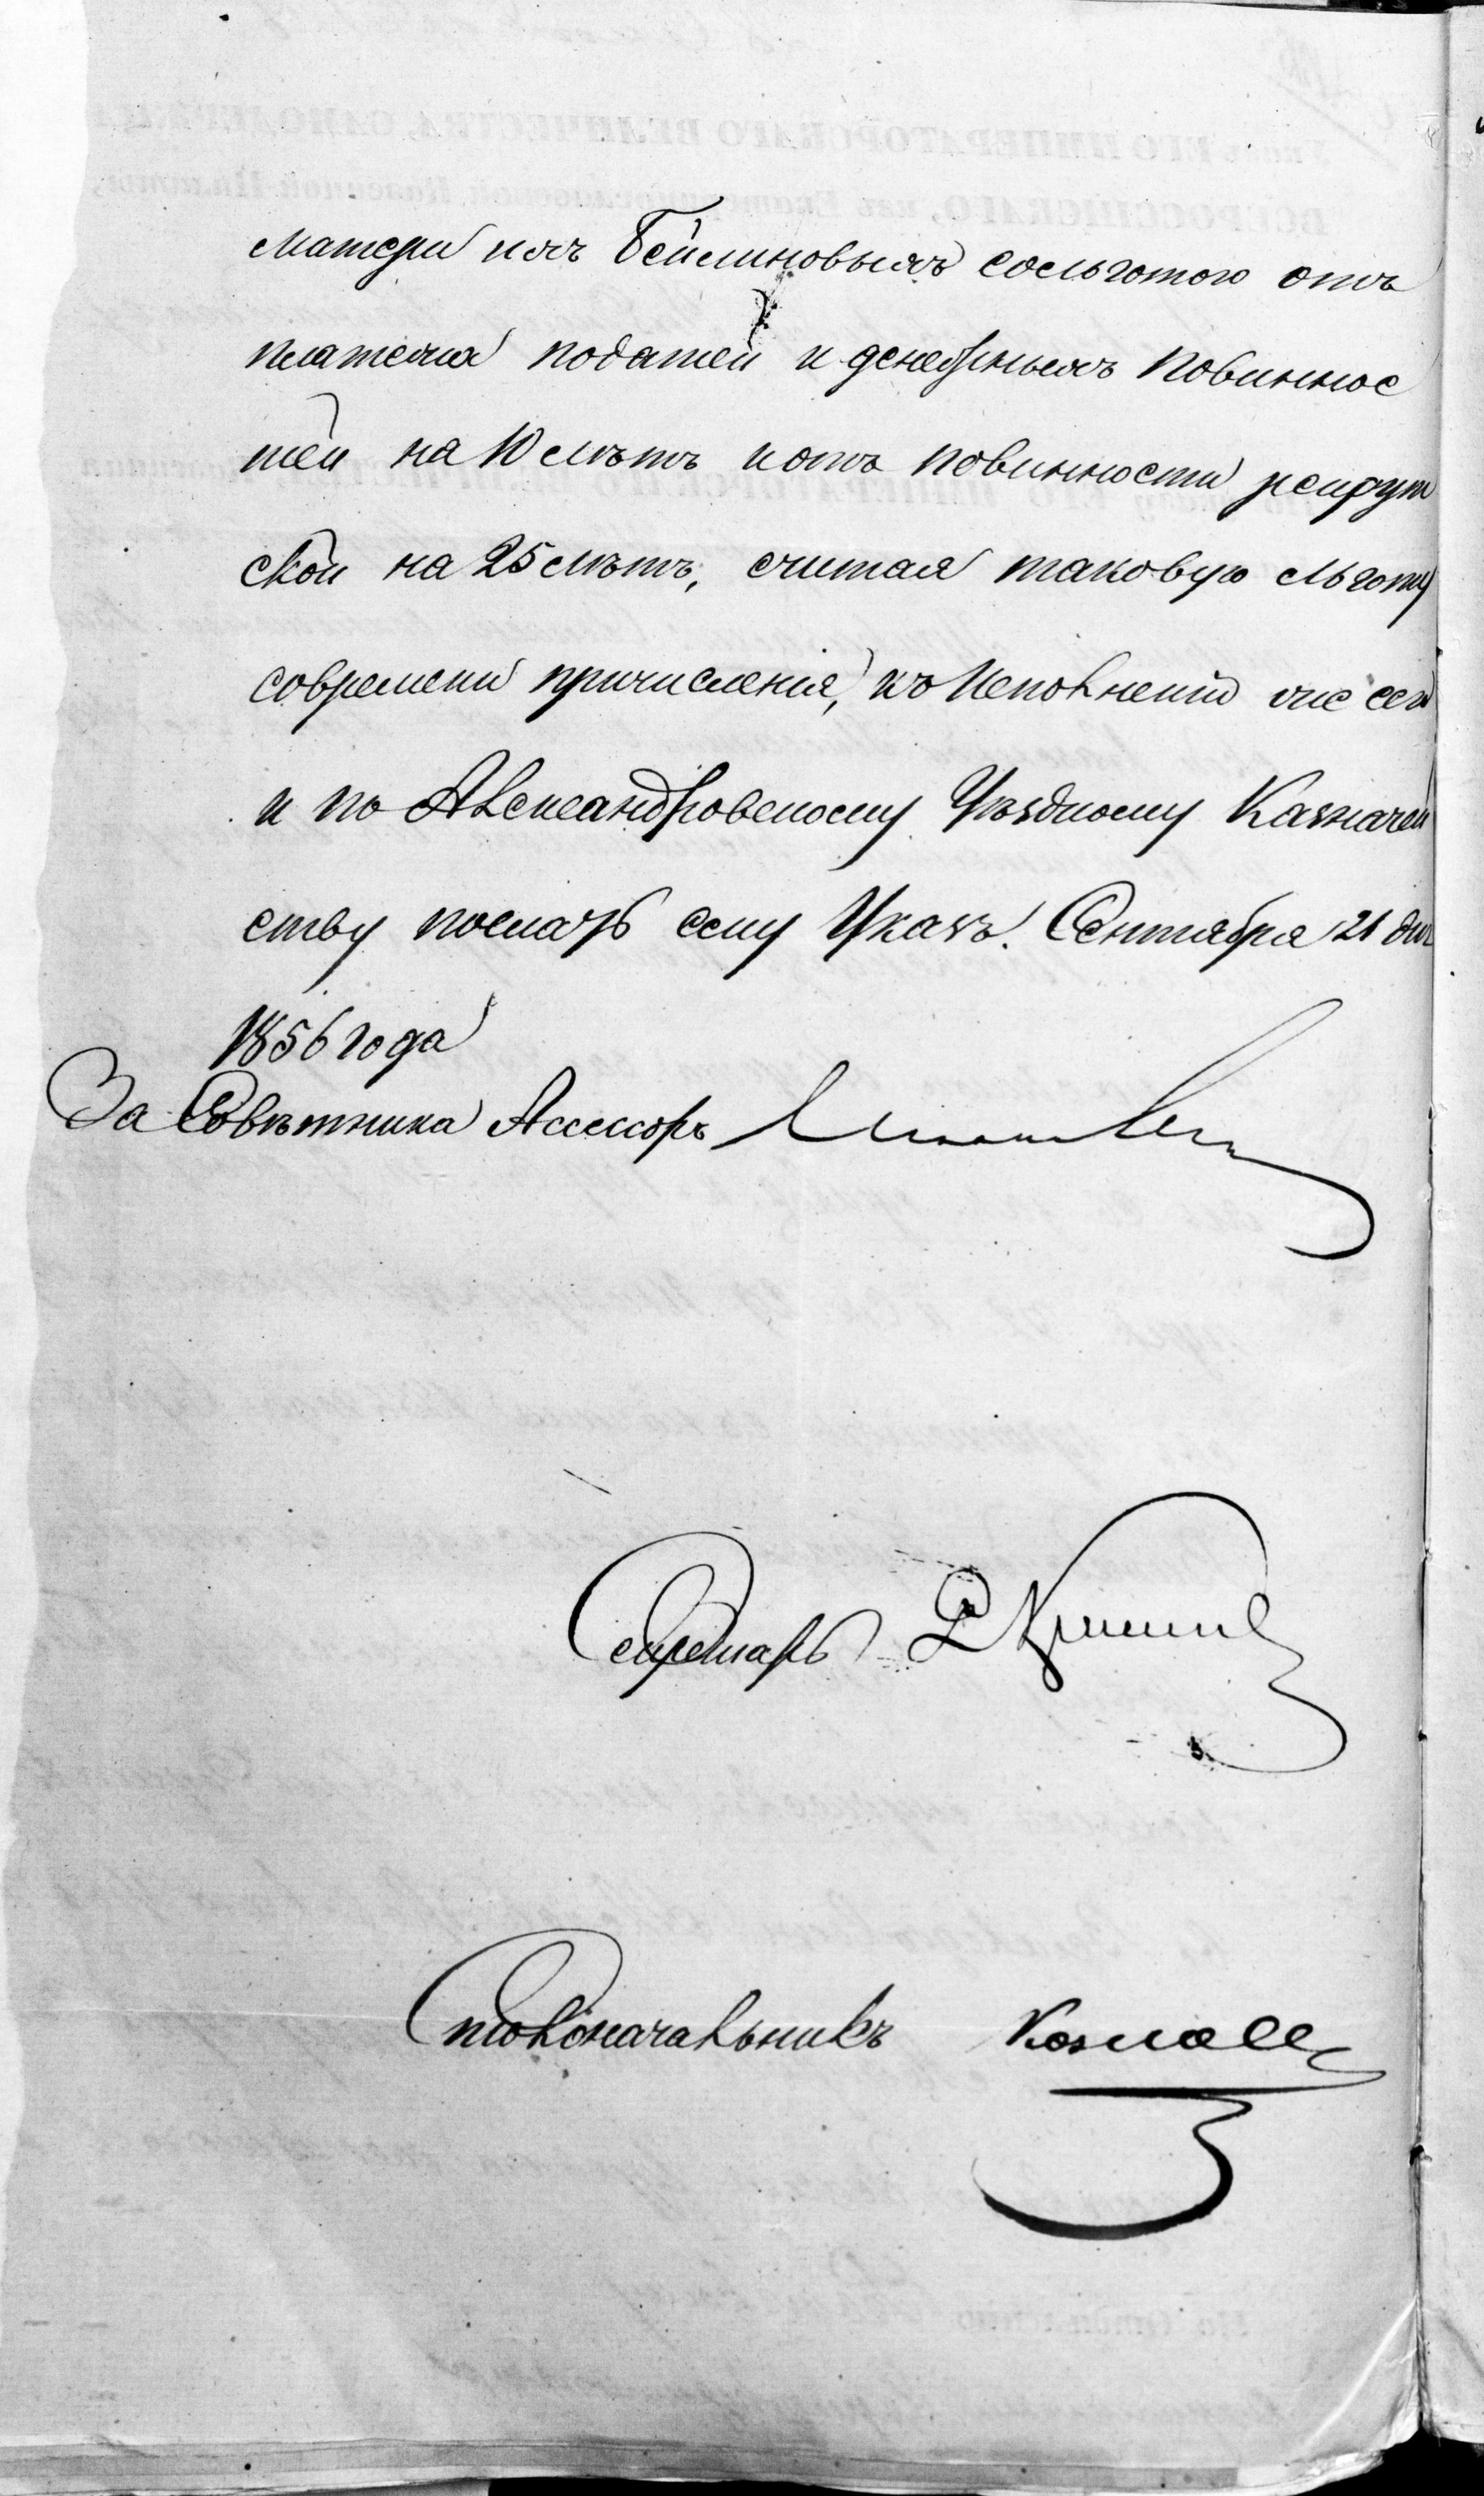 матери ихъ Бейлиновымъ сольготою отъ
платежа податей и денежныхъ повиннос
тей на 10 лѣтъ и отъ повинности рекрут
ской на 25 лѣтъ, считая таковую льготу
современи причисленія, къ исполненію
и по Александровскому Уѣздному Казначей
ству послать сему Указъ. Сентября 21 дня
1856 года
За Совѣтника Ассесоръ
Секретарь
Столоначальникъ Козловъ